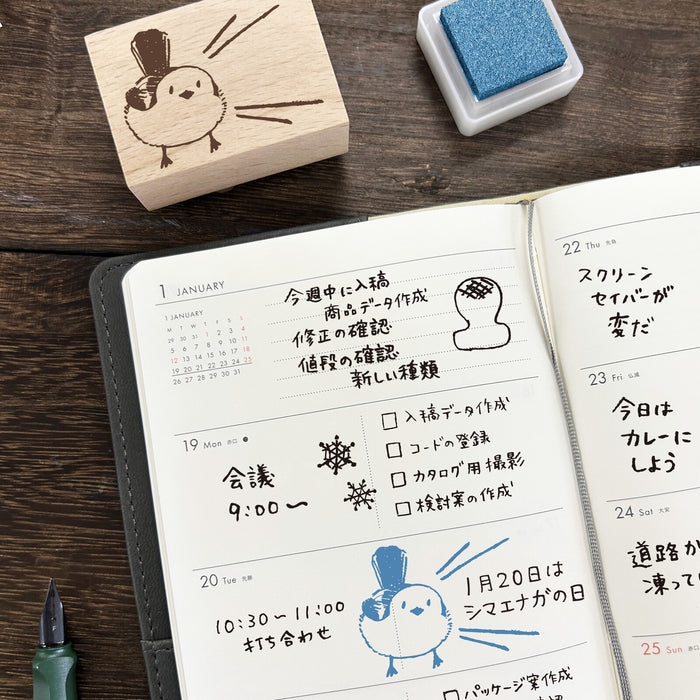 1 JANUARY
1 JANUARY
M T W T F S S
1 2 3 4
5 6 7 8 9 10 11
12 13 14 15 16 17 18
19 20 21 22 23 24 25
26 27 28 29 30 31
今週中に入稿
商品データ作成
修正の確認
値段の確認
新しい種類
19 Mon 赤口
会議
9:00〜
入稿データ作成
コードの登録
カタログ用撮影
検討案の作成
20 Tue 先勝
10:30〜11:00
打ち合わせ
1月20日は
シマエナガの日
パッケージ案作成
22 Thu 先負
スクリーン
セイバーが
変だ
23 Fri 仏滅
今日は
カレーに
しよう
24 Sat 大安
道路が
凍ってい
25 Sun 赤口